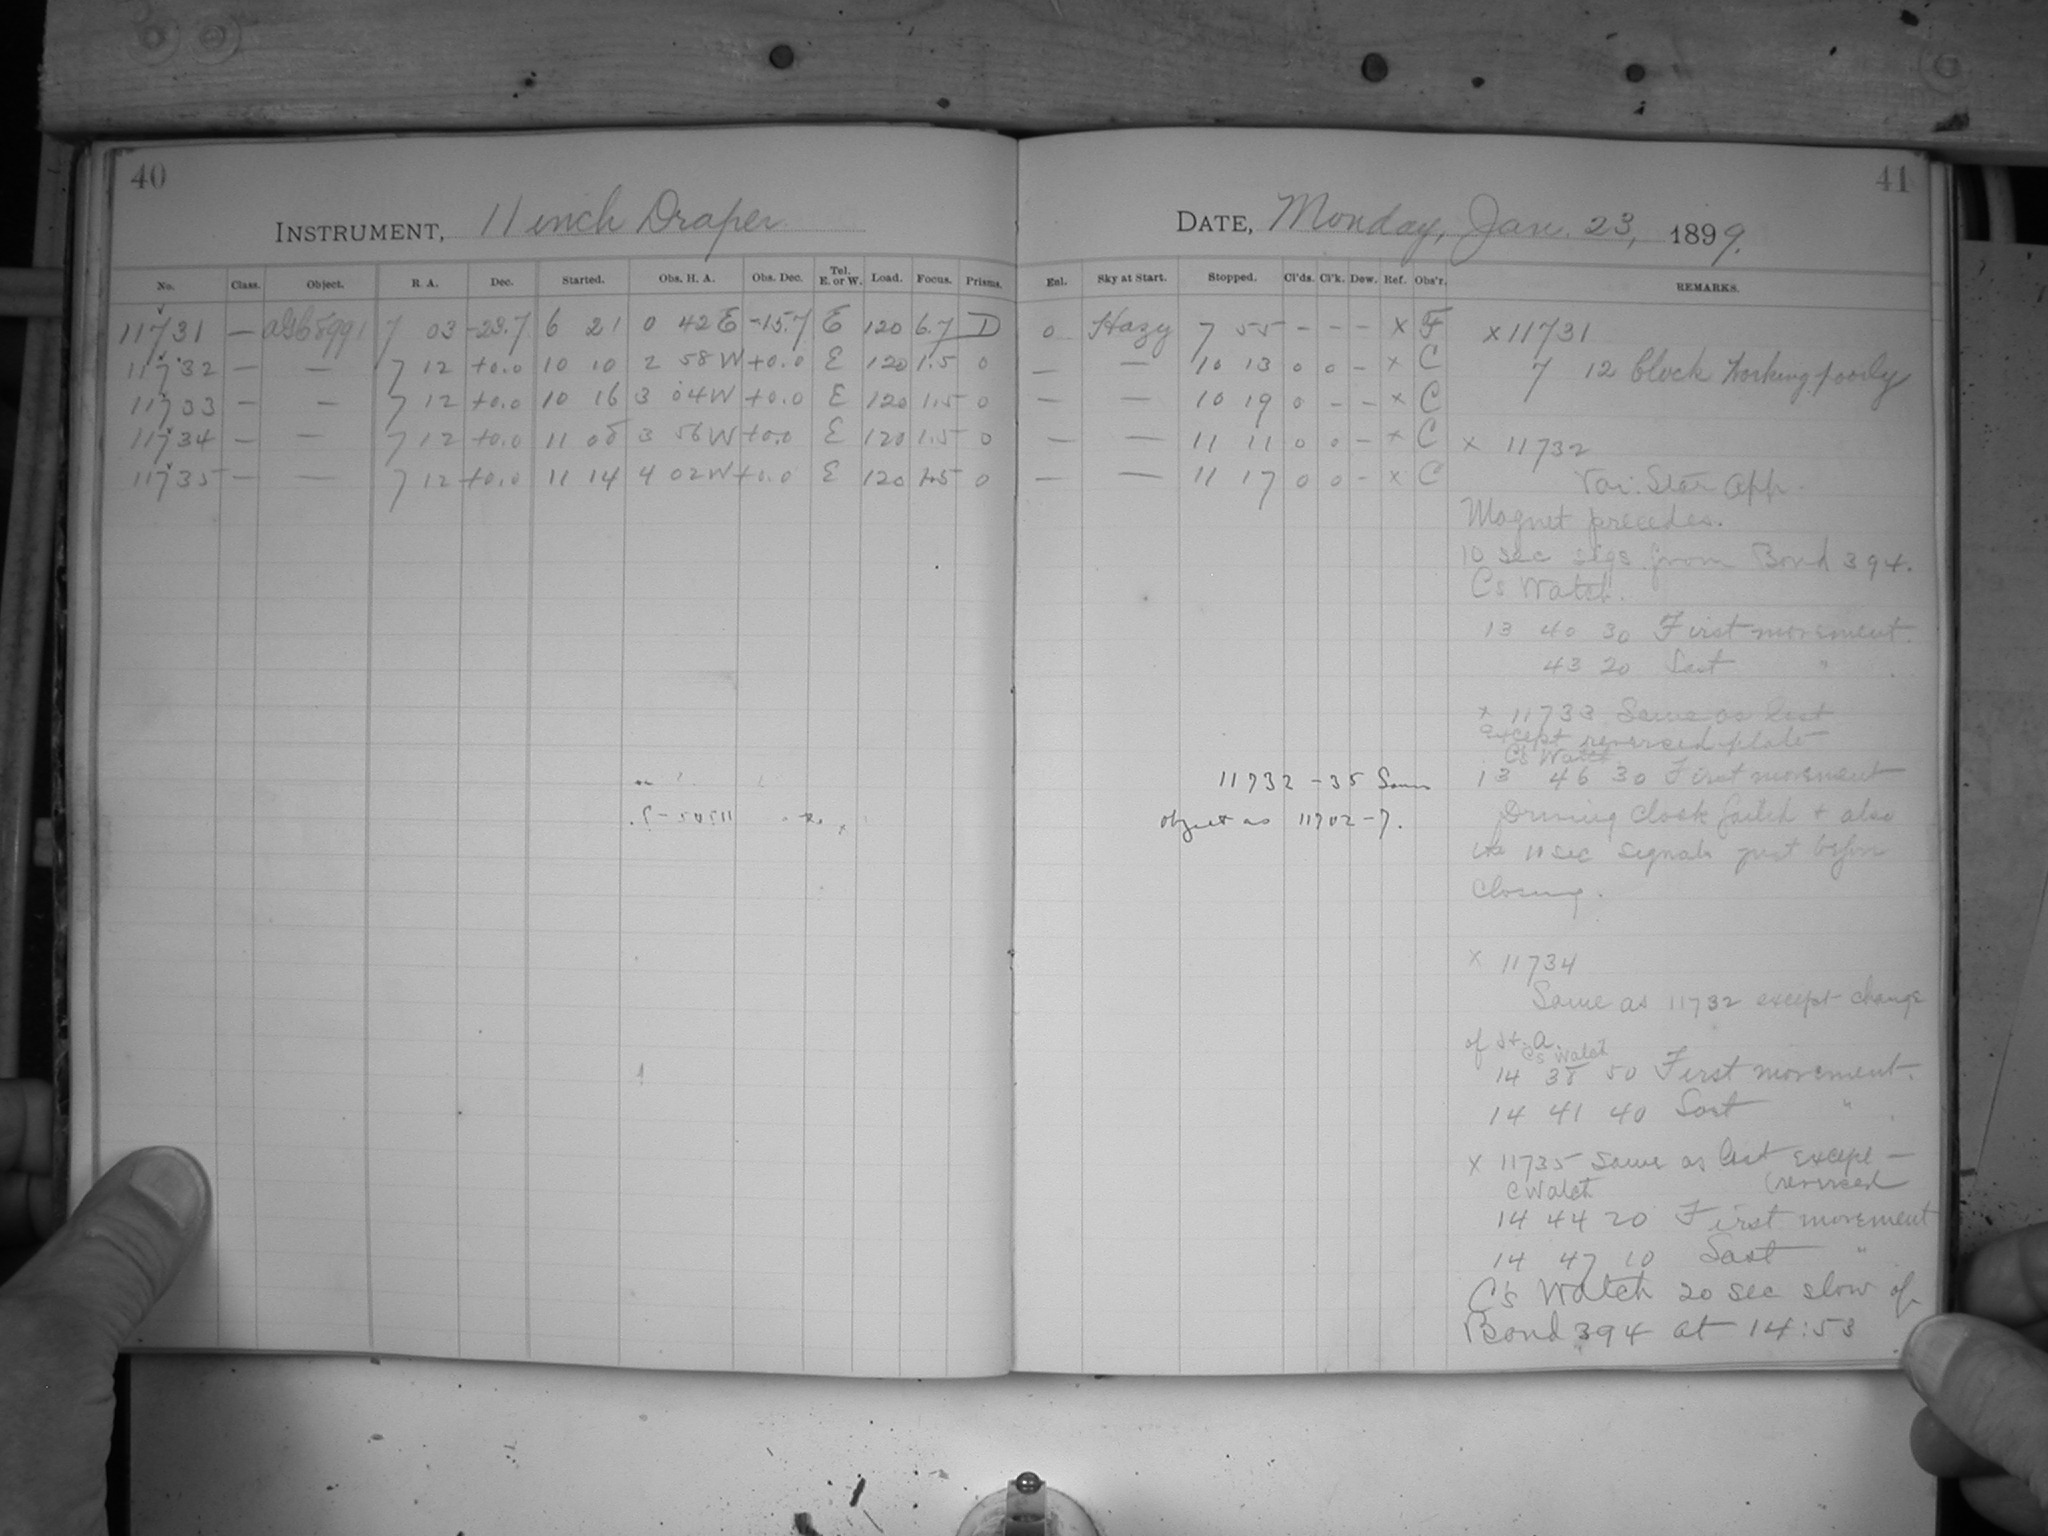 40
INSTRUMENT, 11 inch Draper.
No. Class. Object. R. A. Dec. Started. Obs. H. A. Obs. Dec. Tel. E. or W. Load. Focus. Prisms.
11731 — 7 03 -23.7 6 21 0 42 E -15.7 E 120 6.7 D
11732 — — 7 12 +0.0 10 10 2 58 W +0.0 E 120 1.5 0
11733 — — 7 12 +0.0 10 16 3 04 W +0.0 E 120 1.5 0
11734 — — 7 12 +0.0 11 08 3 56 W +0.0 E 120 1.5 0
11735 — — 7 12 +0.0 11 14 4 02 W +0.0 E 120 1.5 0
41
DATE, Monday, Jan. 23, 1899.
Enl. Sky at Start. Stopped. Cl'ds. Cl'k. Dew. Ref. Obs'r. REMARKS.
0 Hazy 7 55 - - - x F
— — 10 13 0 0 - x C
— — 10 19 0 - - x C
— — 11 11 0 0 - x C
— — 11 17 0 0 - x C
11732 - 35 Same
object as 11702-7.
x 11731
7 12 Clock working poorly
x 11732
Var. Star App.
Magnet precedes.
10 sec sigs. from Bond 394.
C's Watch.
13 40 30 First movement.
43 20 Last "
x 11733 Same as last
except reversed plate
C's Watch
13 46 30 First movement
Driving Clock failed + also
the 10 sec signals just before
closing.
x 11734
Same as 11732 except change
of H. A.
C's Watch
14 38 50 First movement.
14 41 40 Last "
x 11735 Same as last except —
(reversed
C Watch
14 44 20 First movement
14 47 10 Last "
C's Watch 20 sec slow of
Bond 394 at 14:53